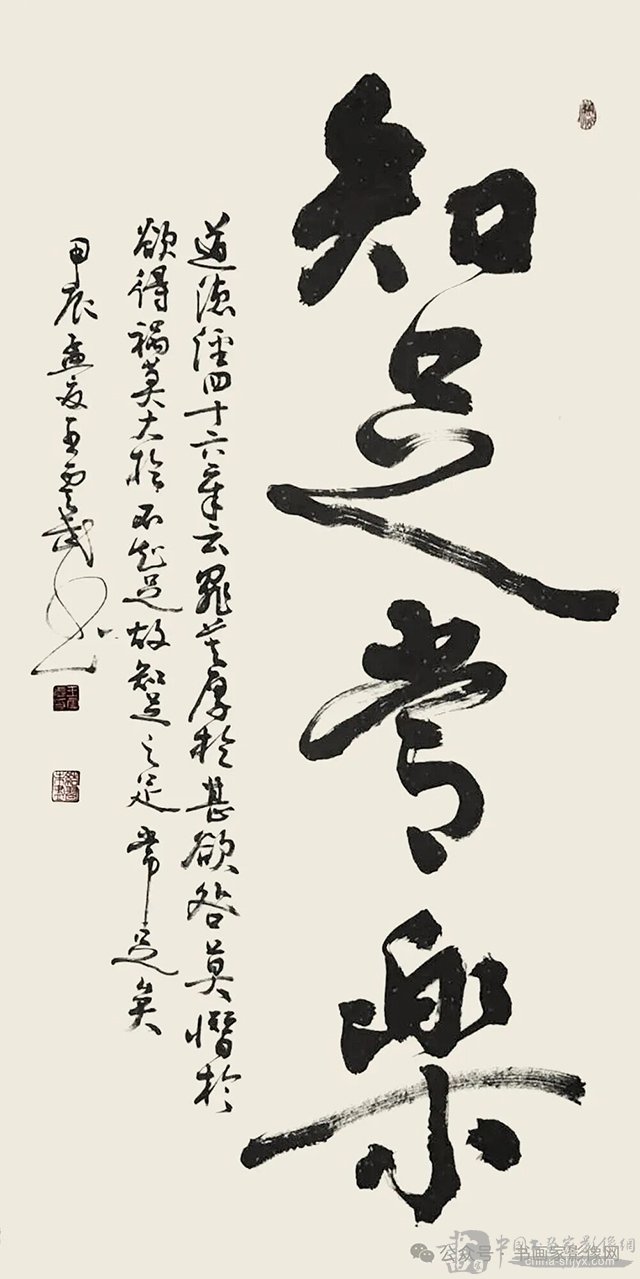 知足常樂
道德經四十六章云罪莫厚於甚欲咎莫憯於
欲得禍莫大於不知足故知足之足常足矣
甲辰孟夏王雲武書
公众号·书画家影像网
china-shjyx.com